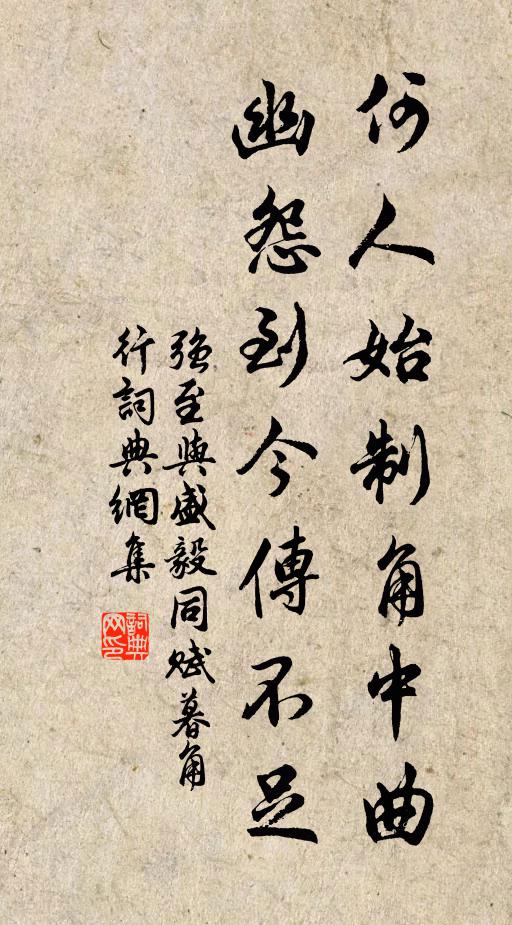 何人始制角中曲
幽怨到今傳不足
强至與盛毅同赋暮角
行詞典網集
詞典网印